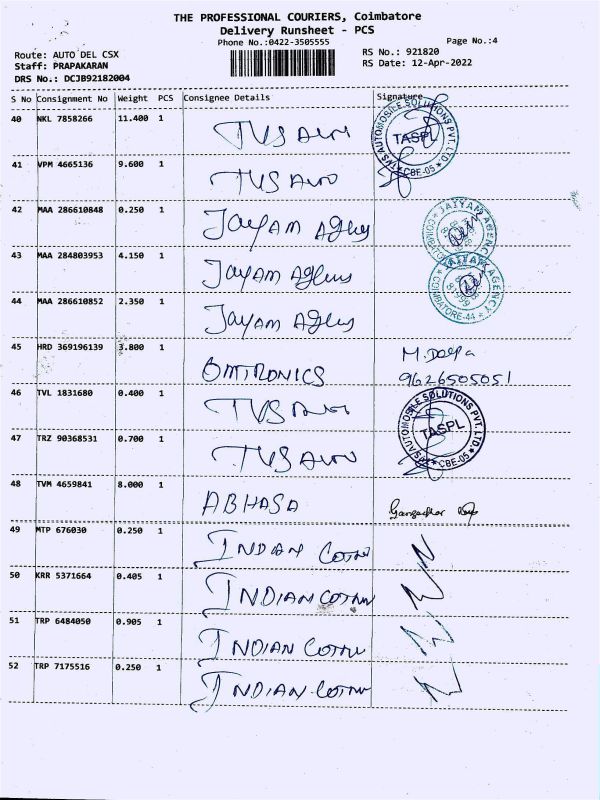 THE PROFESSIONAL COURIERS, Coimbatore
Delivery Runsheet - PCS
Phone No.:0422-3505555
Page No.:4
Route: AUTO DEL CSX
RS No.: 921820
Staff: PRAPAKARAN
RS Date: 12-Apr-2022
DRS No.: DCJB92182004
S No Consignment No Weight PCS Consignee Details Signature
40 NKL 7858266 11.400 1 TVS Auto
TVS AUTOMOBILE SOLUTIONS PVT. LTD. TASPL CBE-05
41 VPM 4665136 9.600 1 TVS Auto
42 MAA 286610848 0.250 1 Jayam
JAIYAM AGENCY
43 MAA 284803953 4.150 1 Jayam
JAIYAM AGENCY COIMBATORE-44
44 MAA 286610852 2.350 1 Jayam
45 HRD 369196139 3.800 1 OMTRONICS M. Deepa
9626505051
46 TVL 1831680 0.400 1 TVS
TVS AUTOMOBILE SOLUTIONS PVT. LTD. TASPL CBE-05
47 TRZ 90368531 0.700 1 TVS Auto
48 TVM 4659841 8.000 1 ABHASA
49 MTP 676030 0.250 1 INDIAN
50 KRR 5371664 0.405 1 INDIAN
51 TRP 6484050 0.905 1 INDIAN
52 TRP 7175516 0.250 1 INDIAN